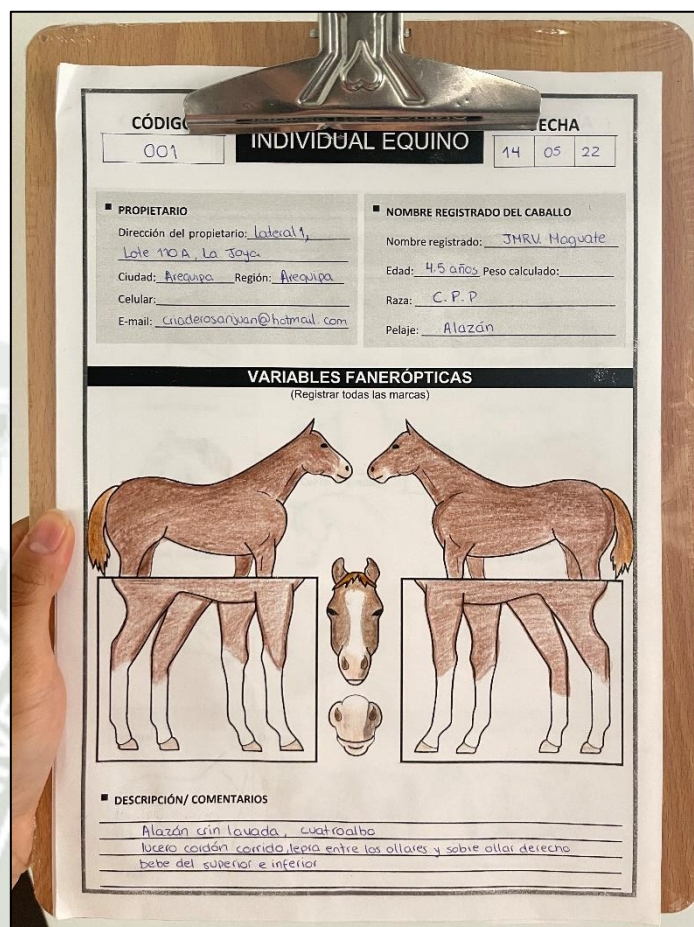 CÓDIGO
001
INDIVIDUAL EQUINO
FECHA
14 05 22
PROPIETARIO
Dirección del propietario: lateral 1,
Lote 110 A, La Joya
Ciudad: Arequipa Región: Arequipa
Celular:
E-mail: criaderosanjuan@hotmail.com
NOMBRE REGISTRADO DEL CABALLO
Nombre registrado: JMRV. Maguate
Edad: 4.5 años Peso calculado:
Raza: C.P.P
Pelaje: Alazán
VARIABLES FANERÓPTICAS
(Registrar todas las marcas)
DESCRIPCIÓN/ COMENTARIOS
Alazán crin lavada, cuatroalbo
lucero cordón corrido, lepra entre los ollares y sobre ollar derecho
bebe del superior e inferior